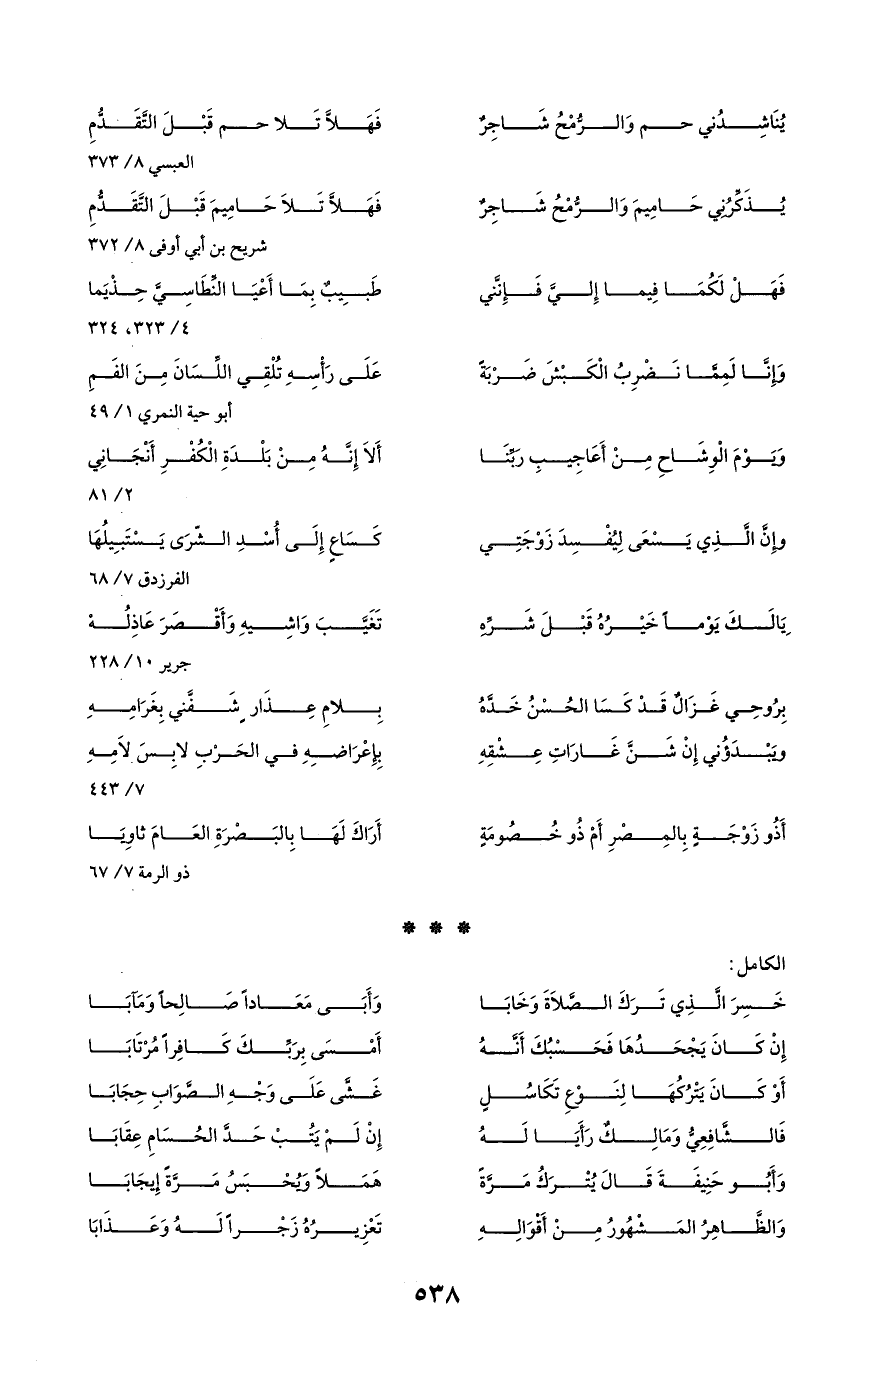 يُنَاشِدُني حـم وَالرُّمْحُ شَاجِرٌ فَهَلاَّ تَلا حـم قَبْلَ التَّقَدُّمِ
العبسي ٨/ ٣٧٣
يُذَكِّرُنِي حَامِيمَ وَالرُّمْحُ شَاجِرٌ فَهَلاَّ تَلاَ حَامِيمَ قَبْلَ التَّقَدُّمِ
شريح بن أبي أوفى ٨/ ٣٧٢
فَهَلْ لَكُمَا فِيما إِليَّ فَإِنَّني طَبِيبٌ بِمَا أَعْيَا النِّطَاسِيَّ حِذْيَما
٤/ ٣٢٣، ٣٢٤
وَإِنَّا لَمِمَّا نَضْرِبُ الْكَبْشَ ضَرْبَةً عَلَى رَأْسِهِ تُلْقِي اللِّسَانَ مِنَ الفَمِ
أبو حية النمري ١/ ٤٩
وَيَوْمَ الْوِشَاحِ مِنْ أَعَاجِيبِ رَبِّنَا أَلاَ إِنَّهُ مِنْ بَلْدَةِ الْكُفْرِ أَنْجَانِي
٢/ ٨١
وإِنَّ الَّذِي يَسْعَى لِيُفْسِدَ زَوْجَتِي كَسَاعٍ إِلَى أُسْدِ الشّرَى يَسْتَبِيلُهَا
الفرزدق ٧/ ٦٨
يَالَكَ يَوْماً خَيْرُهُ قَبْلَ شَرِّهِ تَغَيَّبَ وَاشِيهِ وَأَقْصَرَ عَاذِلُهْ
جرير ١٠/ ٢٢٨
بِرُوحِي غَزَالٌ قَدْ كَسَا الحُسْنُ خَدَّهُ بِلامِ عِذَارٍ شَفَّني بِغَرَامِهِ
ويَبْدَؤُني إِنْ شَنَّ غَارَاتِ عِشْقِهِ بِإِعْرَاضِهِ في الحَرْبِ لابِسَ لاَمِهِ
٧/ ٤٤٣
أَذُو زَوْجَةٍ بِالمِصْرِ أَمْ ذُو خُصُومَةٍ أَرَاكَ لَهَا بِالبَصْرَةِ العَامَ ثاوِيَا
ذو الرمة ٧/ ٦٧
* * *
الكامل:
خَسِرَ الَّذِي تَرَكَ الصَّلاَةَ وَخَابَا وَأَبَى مَعَاداً صَالِحاً وَمَآبَا
إِنْ كَانَ يَجْحَدُهَا فَحَسْبُكَ أَنَّهُ أَمْسَى بِرَبِّكَ كَافِراً مُرْتَابَا
أَوْ كَانَ يَتْرُكُهَا لِنَوْعِ تَكَاسُلٍ غَشَّى عَلَى وَجْهِ الصَّوَابِ حِجَابَا
فَالشَّافِعِيُّ وَمَالِكٌ رَأَيَا لَهُ إِنْ لَمْ يَتُبْ حَدَّ الحُسَامِ عِقَابَا
وَأَبُو حَنِيفَةَ قَالَ يُتْرَكُ مَرَّةً هَمَلاً وَيُحْبَسُ مَرَّةً إِيجَابَا
وَالظَّاهِرُ المَشْهُورُ مِنْ أَقْوَالِهِ تَعْزِيرُهُ زَجْراً لَهُ وَعَذَابَا
٥٣٨